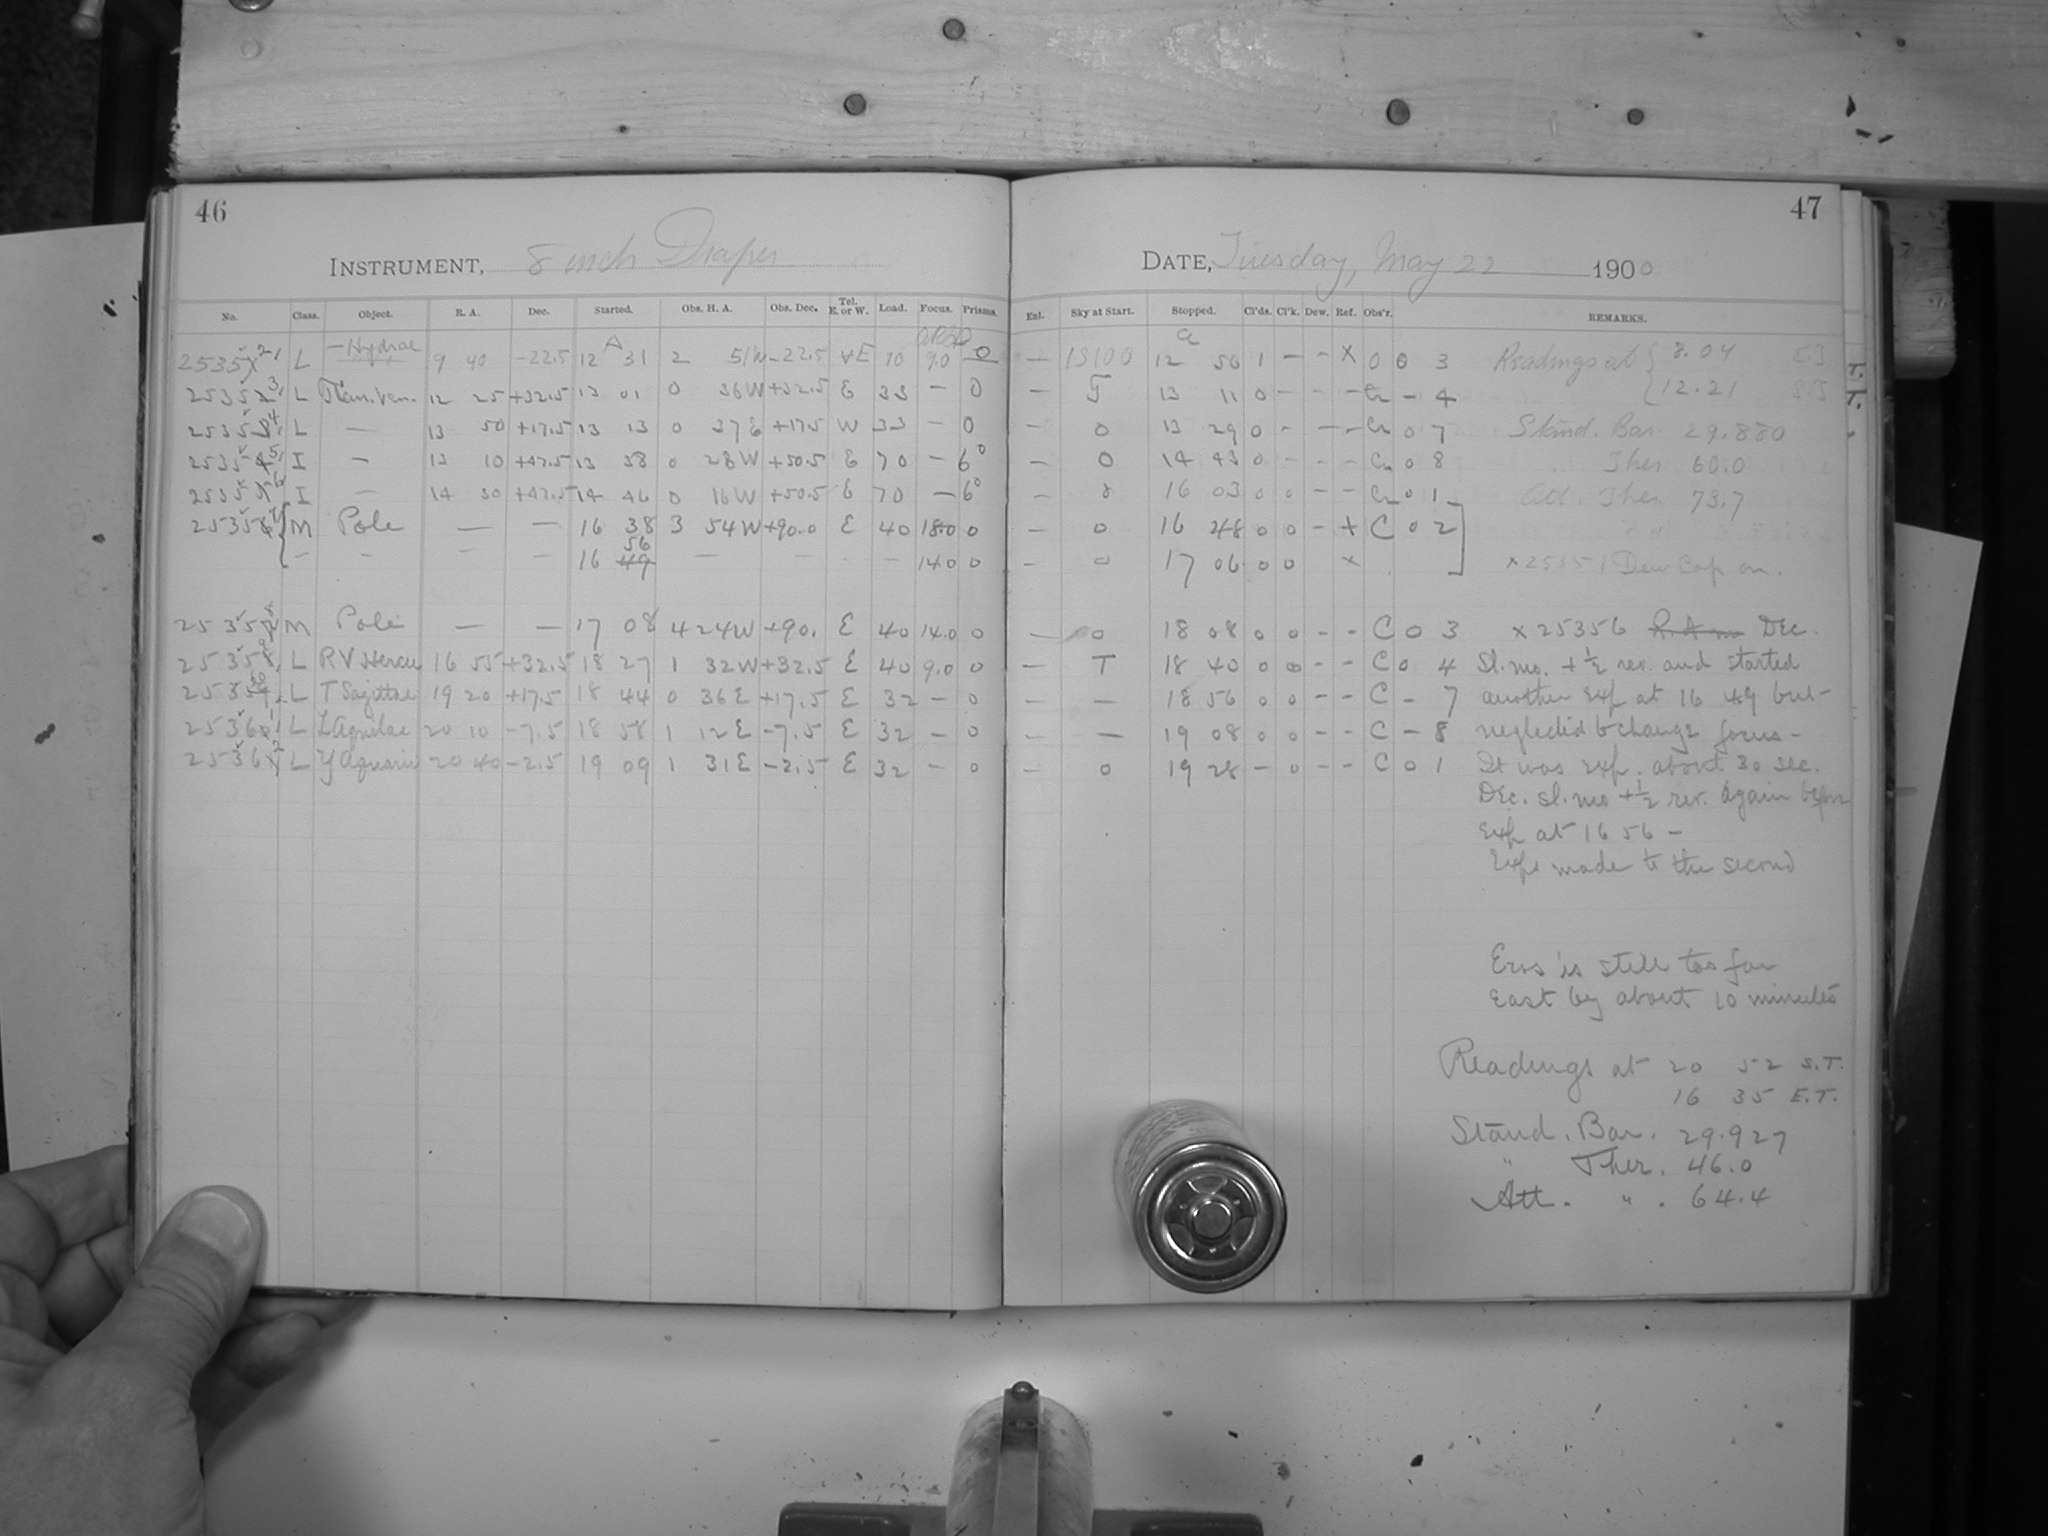 46
INSTRUMENT, 8 inch Draper
No. Class. Object. R. A. Dec. Started. Obs. H. A. Obs. Dec. Tel. E. or W. Load. Focus. Prisms.
2535 L Hydrae 9 40 -22.5 12 31 2 51W -22.5 E 70 9.0 0
2535 L 12 25 +32.5 13 01 0 36W +32.5 E 33 - 0
2535 L — 13 50 +17.5 13 13 0 37E +17.5 W 33 - 0
2535 I — 13 10 +47.5 13 38 0 28W +50.5 E 70 - 6°
2535 I — 14 30 +47.5 14 46 0 16W +50.5 E 70 - 6°
2535 M Pole — — 16 38 3 54W +90.0 E 40 18.0 0
- - - - 16 49 56 — — - - 14.0 0
2535 M Pole — — 17 08 4 24W +90. E 40 14.0 0
2535 L RV Hercu 16 55 +32.5 18 27 1 32W +32.5 E 40 9.0 0
253 L T Sagittae 19 20 +17.5 18 44 0 36E +17.5 E 32 - 0
2536 L Aquilae 20 10 -7.5 18 58 1 12E -7.5 E 32 - 0
2536 L Y Aquarii 20 40 -2.5 19 09 1 31E -2.5 E 32 - 0
47
DATE, Tuesday, May 22 1900
Enl. Sky at Start. Stopped. Cl'ds. Cl'k. Dew. Ref. Obs'r. REMARKS.
— 13100 12 56 1 - - X 0 0 3 Readings at { 8.04 E.T.
— 13 11 0 - - - - 4 { 12.21 S.T.
— 0 13 29 0 - - - 0 7 Stand. Bar. 29.880
— 0 14 43 0 - - - 0 8 Ther. 60.0
— 0 16 03 0 0 - - 0 1 Att. Ther. 73.7
— 0 16 48 0 0 - + C 0 2
— 0 17 06 0 0 x x 25351 Dew Cap on.
— 0 18 08 0 0 - - C 0 3 x 25356 Dec.
— T 18 40 0 0 - - C 0 4 Sl. mo. + ½ rev. and started
— — 18 56 0 0 - - C - 7 another exp at 16 49 but
— — 19 08 0 0 - - C - 8 neglected to change focus -
— 0 19 28 - 0 - - C 0 1 It was exp. about 30 sec.
Dec. sl. mo + ½ rev. again before
Exp at 16 56 -
Exps made to the second
Eros is still too far
East by about 10 minutes
Readings at 20 52 S.T.
16 35 E.T.
Stand. Bar. 29.927
" Ther. 46.0
Att. " . 64.4